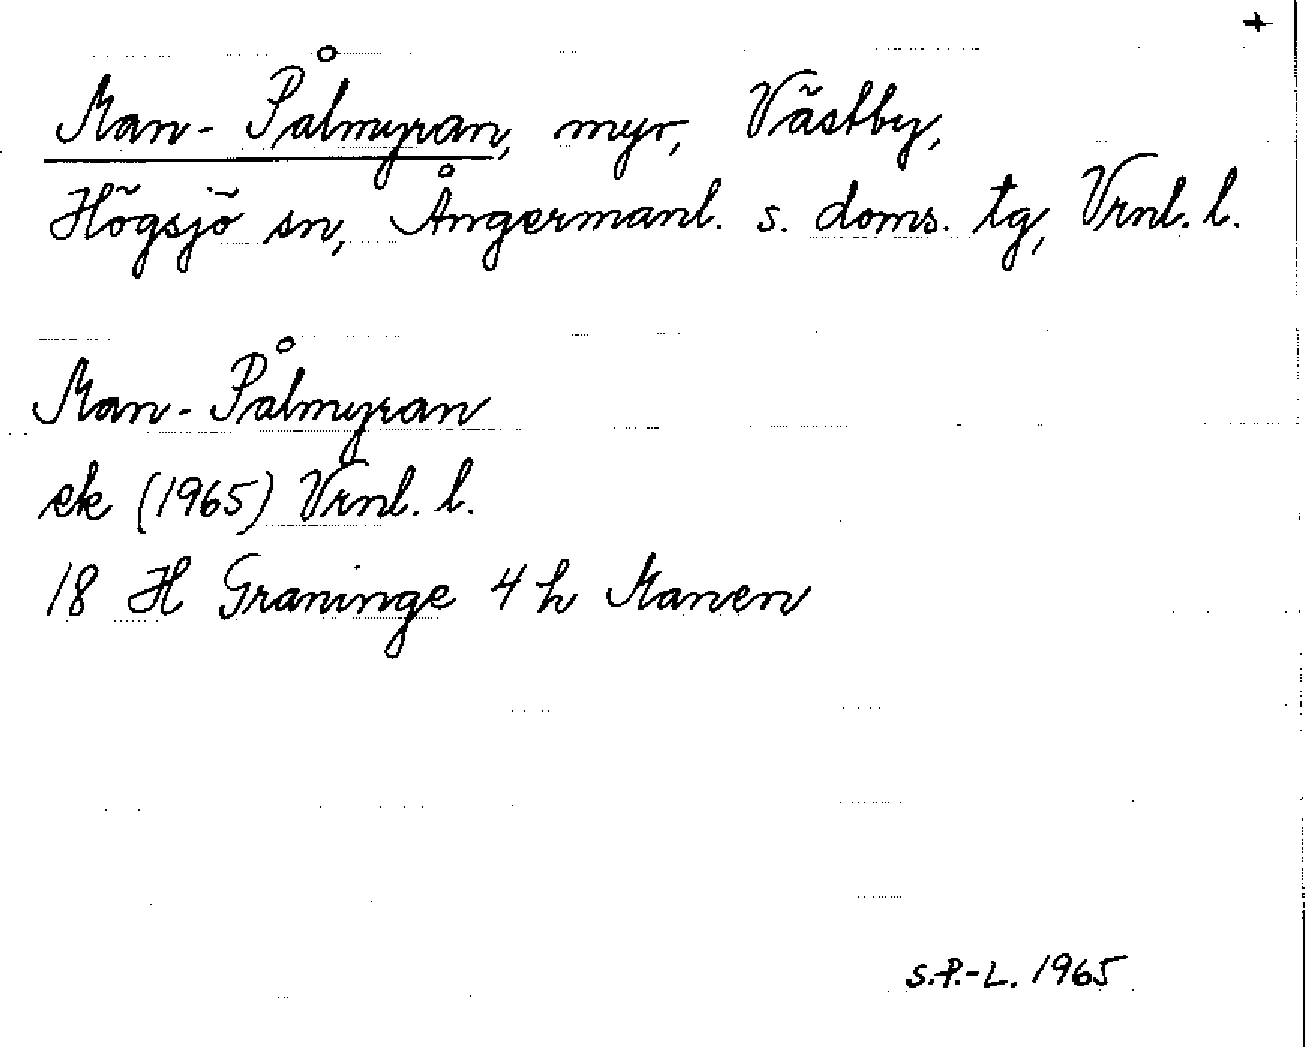 +
Man-Pålmyran, myr, Västby,
Högsjö sn, Ångermanl. s. doms. tg, Vrnl. l.
Man-Pålmyran
ek (1965) Vrnl. l.
18 H Graninge 4 h Manen
S.P.-L. 1965